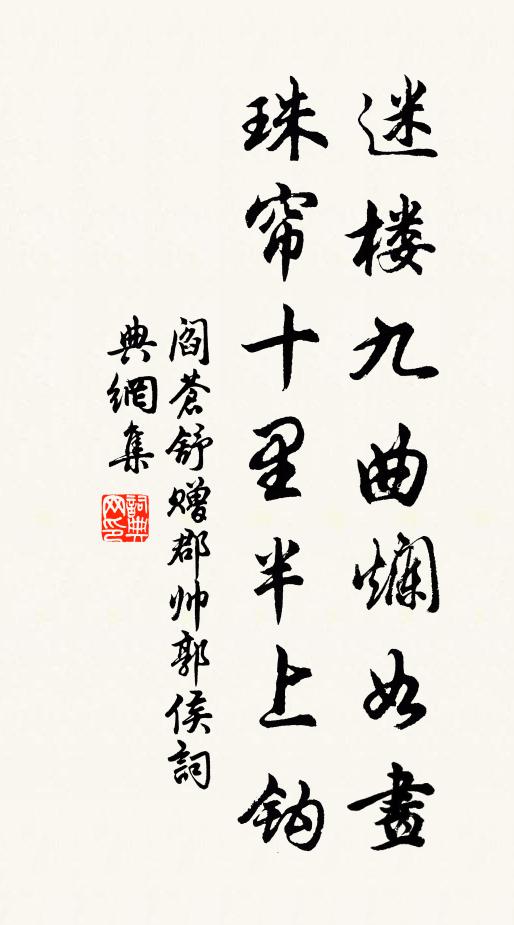 迷楼九曲烂如畫
珠帘十里半上钩
阎苍舒赠郡帅郭侯詞
典網集
詞典网印